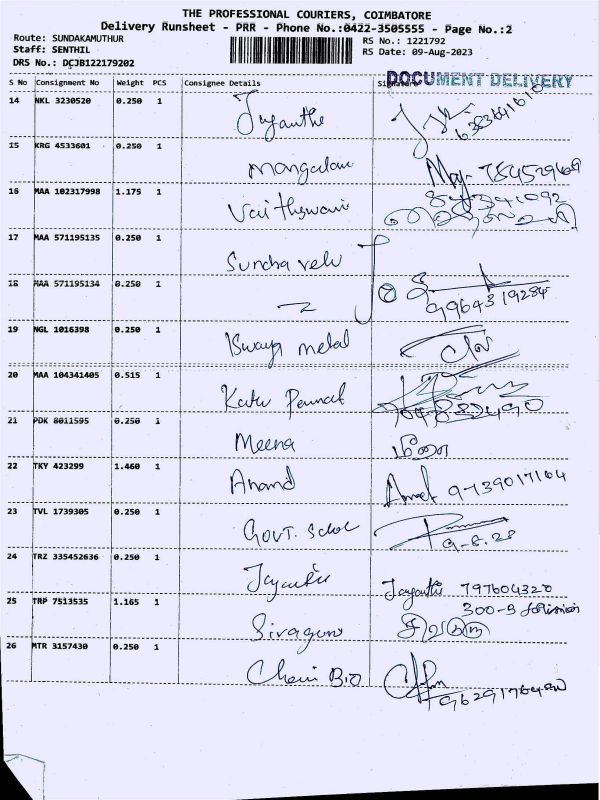 THE PROFESSIONAL COURIERS, COIMBATORE
Delivery Runsheet - PRR - Phone No.:0422-3505555 - Page No.:2
Route: SUNDAKAMUTHUR
RS No.: 1221792
Staff: SENTHIL
RS Date: 09-Aug-2023
DRS No.: DCJB122179202
DOCUMENT DELIVERY
S No Consignment No Weight PCS Consignee Details Signature
14 NKL 3230520 0.250 1 Jayanthi
15 KRG 4533601 0.250 1 Mangalam
16 MAA 102317998 1.175 1
17 MAA 571195135 0.250 1 Sundha velu
18 MAA 571195134 0.250 1 9964319284
19 NGL 1016398 0.250 1 metal
20 MAA 104341405 0.515 1
21 PDK 8011595 0.250 1 Meena மீனா
22 TKY 423299 1.460 1 Anand 9739017164
23 TVL 1739305 0.250 1 GOVT. School 9-8.23
24 TRZ 335452636 0.250 1 Jayanthi Jayanthi 797604320
25 TRP 7513535 1.165 1 300-B
26 MTR 3157430 0.250 1 Bio